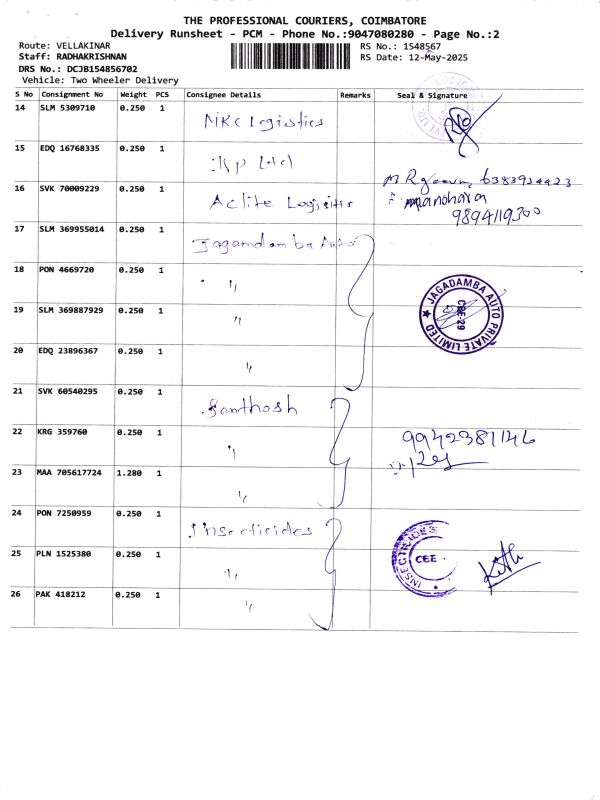 THE PROFESSIONAL COURIERS, COIMBATORE
Delivery Runsheet - PCM - Phone No.:9047080280 - Page No.:2
Route: VELLAKINAR
RS No.: 1548567
Staff: RADHAKRISHNAN
RS Date: 12-May-2025
DRS No.: DCJB154856702
Vehicle: Two Wheeler Delivery
S No Consignment No Weight PCS Consignee Details Remarks Seal & Signature
14 SLM 5309710 0.250 1 Logistics
15 EDQ 16768335 0.250 1
6383924423
16 SVK 70009229 0.250 1 Aclite Logisitis manohara
9894119300
17 SLM 369955014 0.250 1 Jagamdamba Auto
18 PON 4669720 0.250 1 "
JAGADAMBA AUTO PRIVATE LIMITED ★
CBE-29
19 SLM 369887929 0.250 1 "
20 EDQ 23896367 0.250 1 "
21 SVK 60540295 0.250 1 Santhosh
22 KRG 359760 0.250 1 " 9942381146
23 MAA 705617724 1.280 1 "
24 PON 7250959 0.250 1 Insecticides
INSECTICIDES
CBE
25 PLN 1525380 0.250 1 "
26 PAK 418212 0.250 1 "